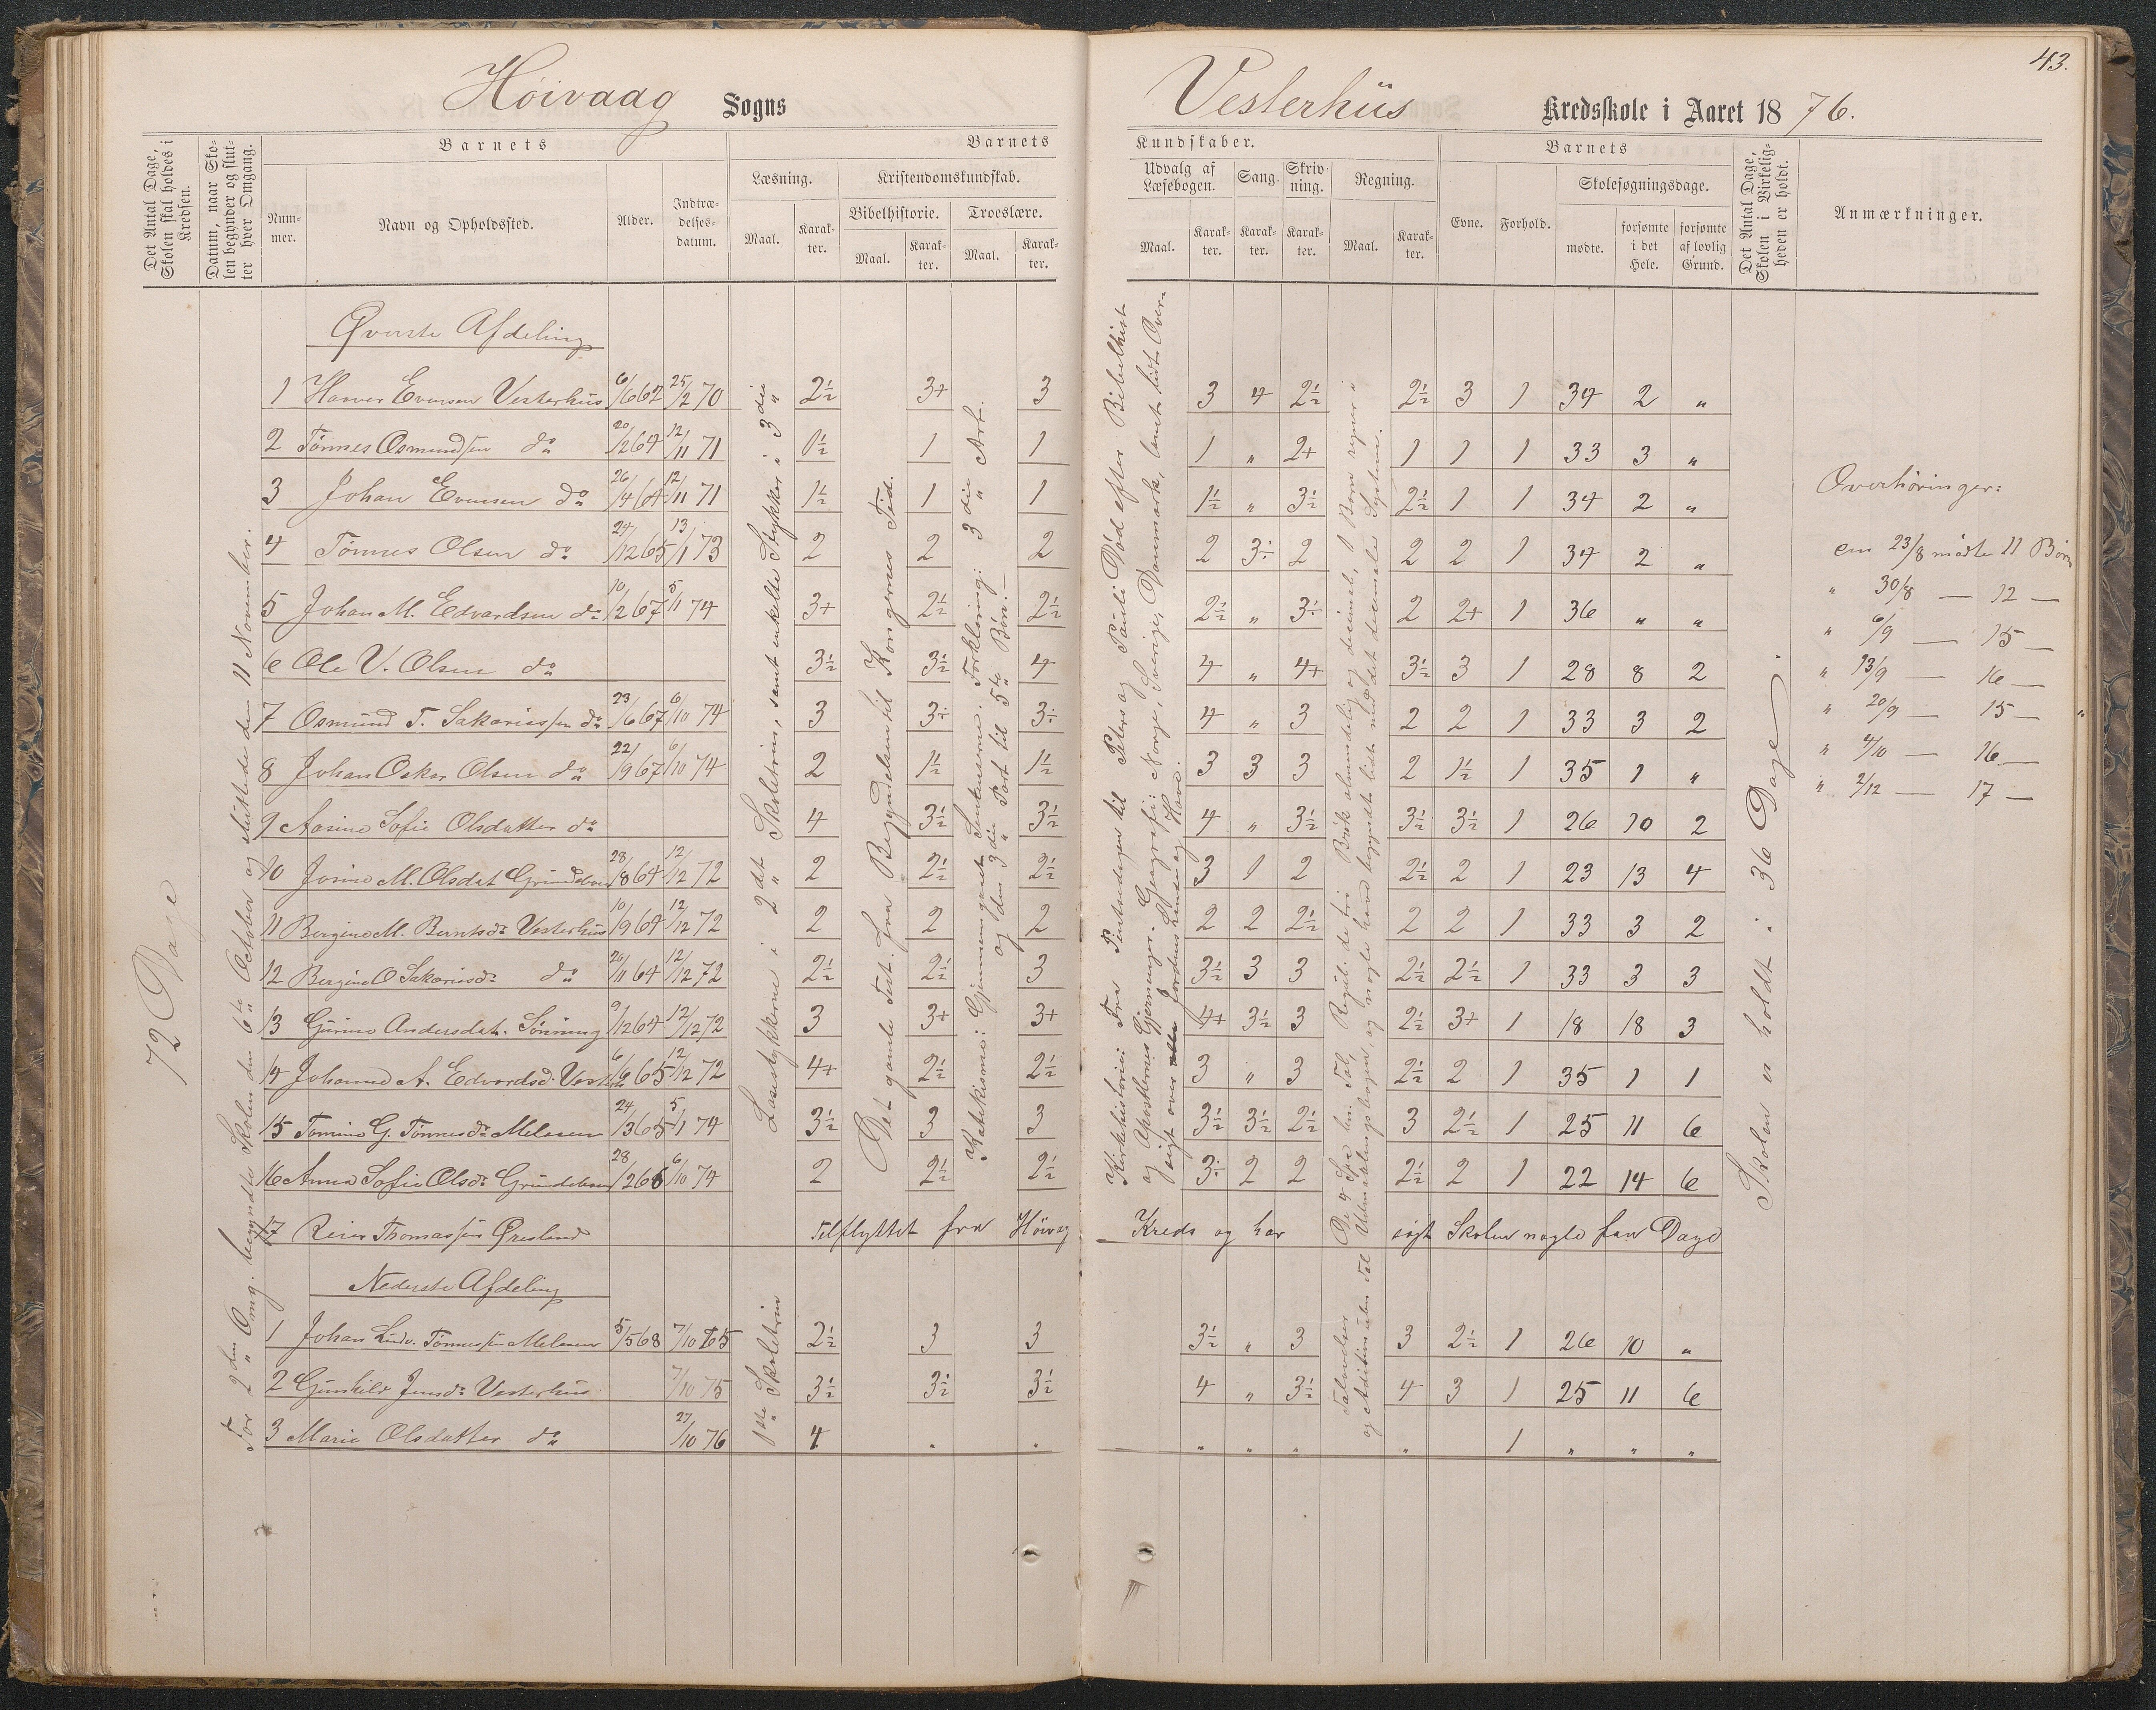 43.
Høivaag Sogns
Vesterhus Kredsskole i Aaret 1876.
Det Antal Dage, Skolen skal holdes i Kredsen.
Datum, naar Skolen begynder og slutter hver Omgang.
Barnets
Nummer.
Navn og Opholdssted.
Alder.
Indtrædelsesdatum.
Barnets
Læsning.
Maal.
Karakter.
Kristendomskundskab.
Bibelhistorie.
Maal.
Karakter.
Troeslære.
Maal.
Karakter.
Kundskaber.
Udvalg af Læsebogen.
Maal.
Karakter.
Sang.
Karakter.
Skrivning.
Karakter.
Regning.
Maal.
Karakter.
Barnets
Evne.
Forhold.
Skolesøgningsdage.
mødte.
forsømte i det Hele.
forsømte af lovlig Grund.
Det Antal Dage, Skolen i Virkeligheden er holdt.
Anmærkninger.
72 Dage
For 2den Omg. begyndte Skolen den 6te October og sluttede den 11 November.
Øverste Afdeling
1 Evensen Vesterhus 6/6 62 25/2 70 2½ 3+ 3 3 4 2½ 2½ 3 1 34 2 "
2 Tønnes Osmundsen do 20/12 64 12/11 71 1½ 1 1 1 " 2+ 1 1 1 33 3 "
3 Johan Evensen do 26/4 64 12/11 71 1½ 1 1 1½ " 3½ 2½ 1 1 34 2 "
4 Tønnes Olsen do 24/12 65 13/1 73 2 2 2 2 3÷ 2 2 2 1 34 2 "
5 Johan M. Edvardsen do 10/2 67 5/11 74 3+ 2½ 2½ 2½ " 3÷ 2 2+ 1 36 " "
6 Ole V. Olsen do 3½ 3½ 4 4 " 4+ 3½ 3 1 28 8 2
7 Osmund T. Sakariassen do 23/6 67 6/10 74 3 3÷ 3÷ 4 " 3 2 2 1 33 3 2
8 Johan Oskar Olsen do 22/9 67 6/10 74 2 1½ 1½ 3 3 3 2 1½ 1 35 1 "
9 Aasine Sofie Olsdatter do 4 3½ 3½ 4 " 3½ 3½ 3½ 1 26 10 2
10 Josine M. Olsdat 28/8 64 12/12 72 2 2½ 2½ 3 1 2 2½ 2 1 23 13 4
11 Bergine M. Berntsdr Vesterhus 10/9 64 12/12 72 2 2 2 2 2 2½ 2 2 1 33 3 2
12 Bergine O Sakariasdr do 20/11 64 12/12 72 2½ 2½ 3 3½ 3 3 2½ 2½ 1 33 3 3
13 Gurine Andersdat. 9/12 64 12/12 72 3 3+ 3+ 4+ 3½ 3 2½ 3+ 1 18 18 3
14 Johanne A. Edvardsd. 6/6 65 12/12 72 4+ 2½ 2½ 3 " 3 2½ 2 1 35 1 1
15 Tomine G. Tønnesdr 24/3 65 5/1 74 3½ 3 3 3½ 3½ 2½ 3 2½ 1 25 11 6
16 Anna Sofie Olsdr 28/2 66 6/10 74 2 2½ 2½ 3÷ 2 2 2½ 2 1 22 14 6
17 Reier Thomassen Øresland Tilflyttet fra Høivag Kreds og har søgt Skolen nogle faa Dage
Nederste Afdeling
1 Johan Ludv. Tønnessen 5/5 68 7/10 75 2½ 3 3 3½ " 3 3 2½ 1 26 10 "
2 Gunhild Jensdr Vesterhus 7/10 75 3½ 3½ 3½ 4 " 3½ 4 3 1 25 11 6
3 Marie Olsdatter do 27/10 76 4 " " " " " " 1 " " "
Læsestykkerne i 2det Skoletrin, samt enkelte Stykker i 3die
1ste Skoletrin
Det gamle Test. fra Begyndelsen til Kongernes Tid.
Katekismo: Gjennemgaaet Forklaring: 3die Art.
og den 3die Part til 5te Bøn.
Kirkehistorie: Fra Pintsedagen til Peters og Pauli Død efter Bibelhist
og Apostlernes Gjerninger. Geografi: Norge, Sverige, Danmark, samt lidt Over-
sigt over Jordens Lande og Have.
og decimal, 1 Barn regner i
Skolen er holdt i 36 Dage.
Overhøringer:
den 23/8 mødte 11 Børn
" 30/8 — 12 —
" 6/9 — 15 —
" 13/9 — 16 —
" 20/9 — 15 —
" 4/10 — 16 —
" 2/12 — 17 —